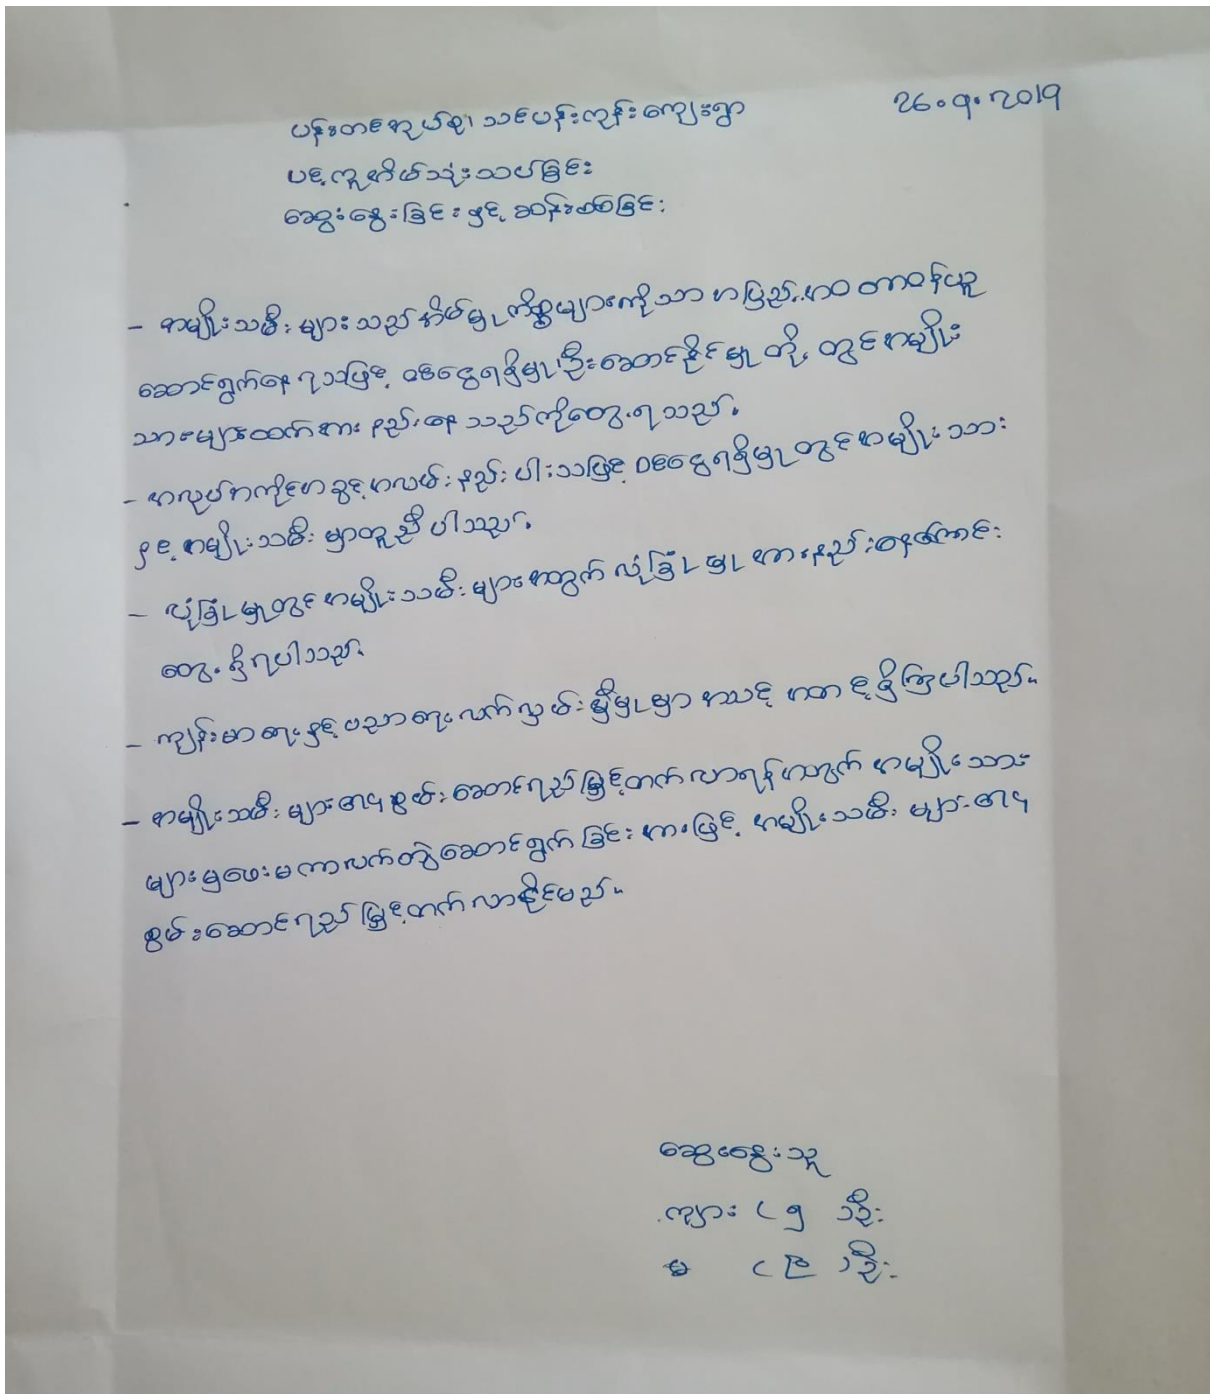 26.9.2019
ပန်းတင်အုပ်စု၊ သင်ပန်းကုန်းကျေးရွာ
ပင့်ကူအိမ်သုံးသပ်ခြင်း
ဆွေးနွေးခြင်းနှင့် ဆန်းစစ်ခြင်း
- အမျိုးသမီးများသည် အိမ်မှုကိစ္စများကိုသာ အပြည့်အဝ တာဝန်ယူ
ဆောင်ရွက်နေရသဖြင့် ဝင်ငွေရရှိမှု၊ ဦးဆောင်နိုင်မှုတို့တွင် အမျိုး
သားများထက် အားနည်းနေသည်ကို တွေ့ရသည်။
- အလုပ်အကိုင်အခွင့်အလမ်း နည်းပါးသဖြင့် ဝင်ငွေရရှိမှုတွင် အမျိုးသား
နှင့် အမျိုးသမီး မှာတူညီပါသည်။
- လုံခြုံမှုတွင် အမျိုးသမီးများအတွက် လုံခြုံမှု အားနည်းနေကြောင်း
တွေ့ရှိရပါသည်။
- ကျန်းမာရေးနှင့် ပညာရေး လက်လှမ်းမှီမှုမှာ အသင့်အတင့်ရှိကြပါသည်။
- အမျိုးသမီးများ၏ စွမ်းဆောင်ရည်မြှင့်တက်လာရန်အတွက် အမျိုးသား
များမှ ဖေးမကာ လက်တွဲဆောင်ရွက်ခြင်းအားဖြင့် အမျိုးသမီးများ၏
စွမ်းဆောင်ရည်မြှင့်တက်လာနိုင်မည်။
ဆွေးနွေးသူ
ကျား ( ၅ )ဦး
မ ( ) ဦး